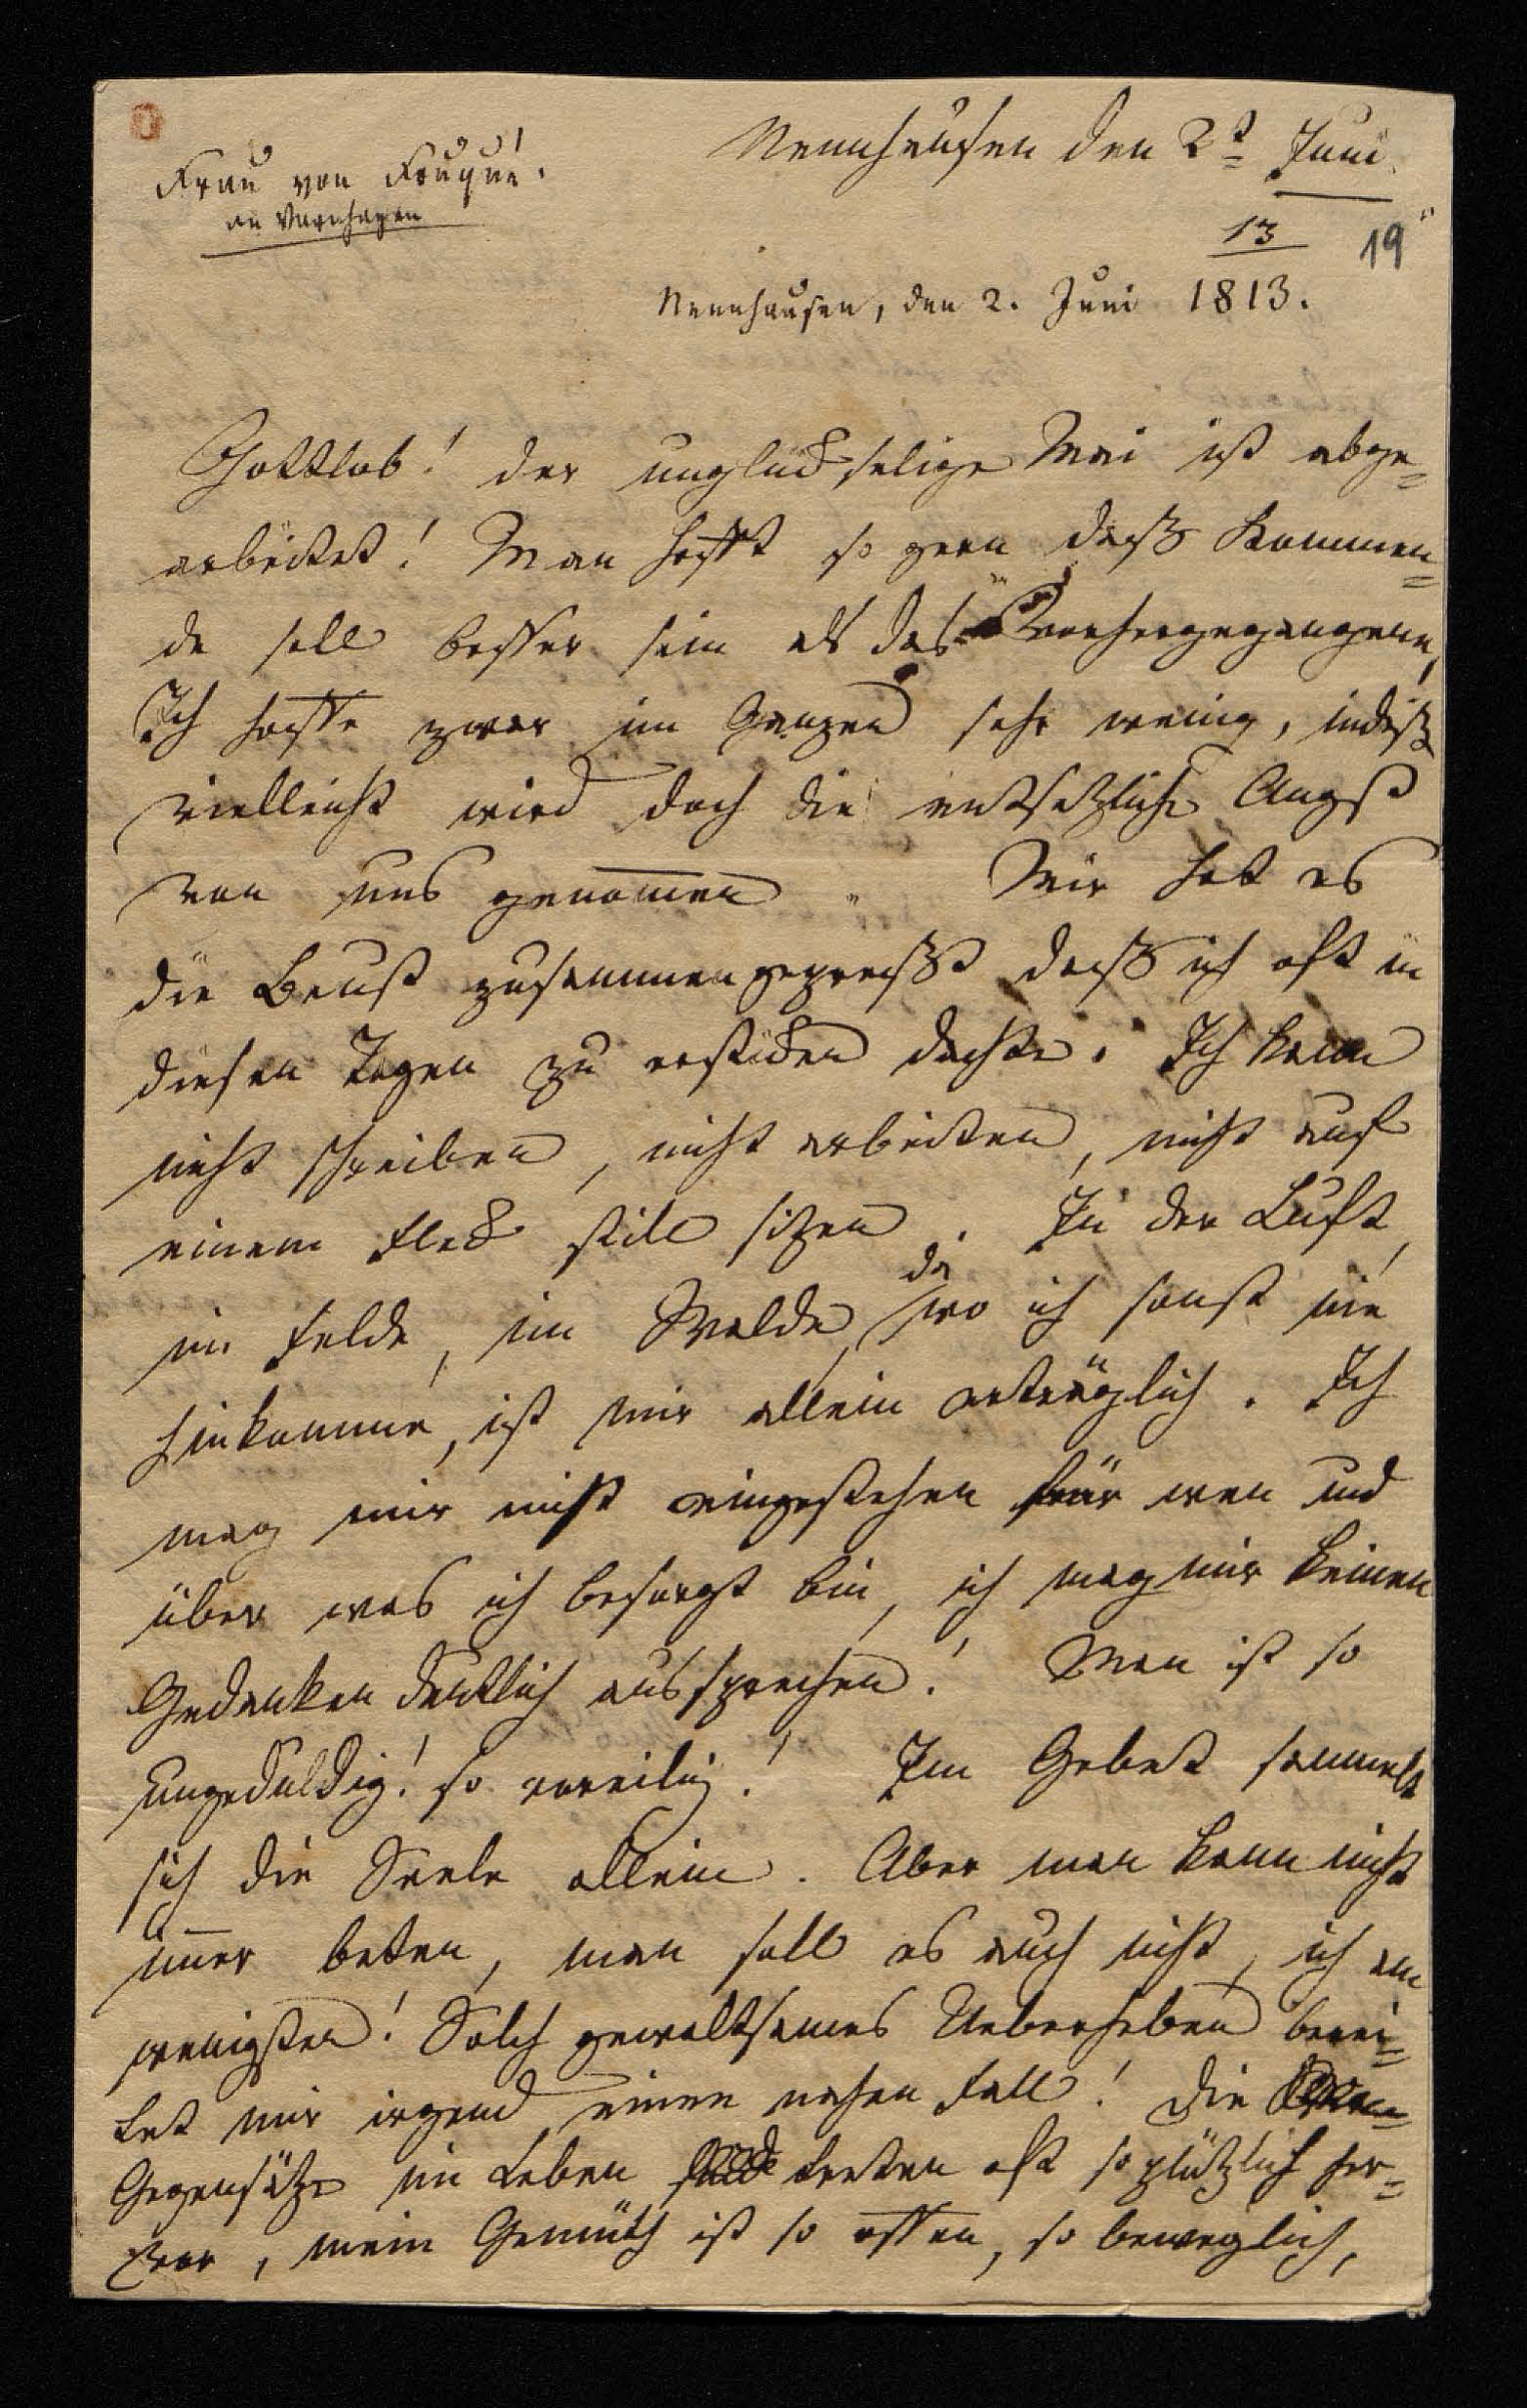 Nennhausen den 2t Juni
Frau von Fouqué.
an Varnhagen
13
19
Nennhausen, den 2. Juni 1813.
Gottlob! der unglückselige Mai ist abge-
arbeitet! Man hofft so gern daß Kommen-
de soll besser sein als das Vorhergegangene,
Ich hoffe zwar im Ganzen sehr wenig, indeß
vielleicht wird doch die entsetzliche Angst
von uns genom̅en. Mir hat es
die Brust zusammengepreßt daß ich oft in
diesen Tagen zu ersticken dachte. Ich kann
nicht schreiben, nicht arbeiten, nicht auf
einem Fleck still sitzen. In der Luft,
im Felde, im Walde, da wo ich sonst nie
hinkomme, ist mir allein erträglich. Ich
mag mir nicht eingestehen für wen und
über was ich besorgt bin, ich mag mir keinen
Gedanken deutlich aussprechen! Man ist so
ungeduldig! so voreilig! Im Gebet sammelt
sich die Seele allein. Aber man kann nicht
im̅er beten, man soll es auch nicht, ich am
wenigsten! Solch gewaltsames Ueberheben berei-
tet mir irgend einen nahen Fall! Die
Gegensätze im Leben treten oft so plötzlich her-
vor, mein Gemüth ist so offen, so beweglich,